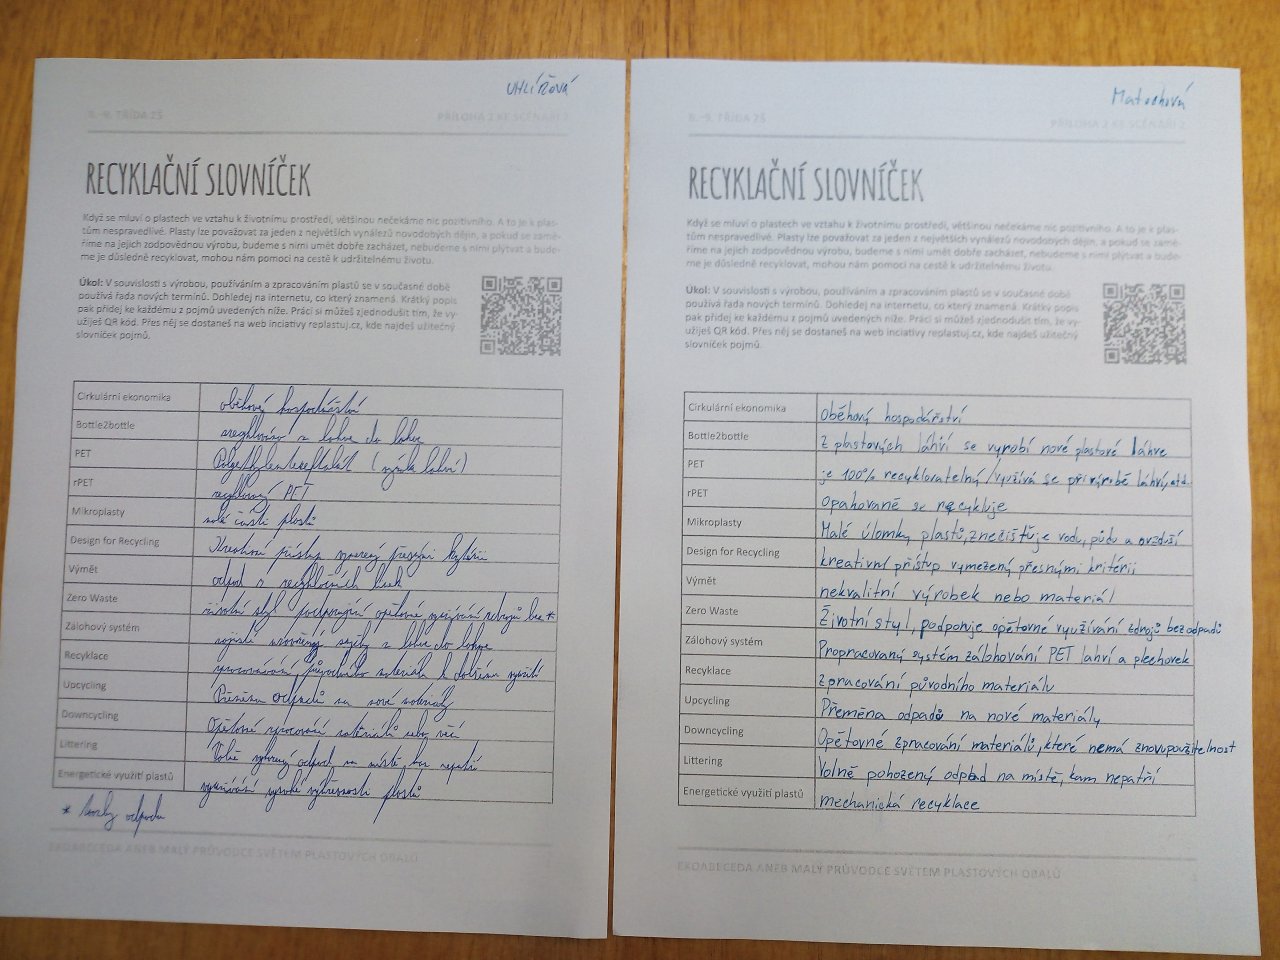 UHLÍŘOVÁ
8.-9. TŘÍDA ZŠ
PŘÍLOHA 2 KE SCÉNÁŘI 2
RECYKLAČNÍ SLOVNÍČEK
Když se mluví o plastech ve vztahu k životnímu prostředí, většinou nečekáme nic pozitivního. A to je k plas-
tům nespravedlivé. Plasty lze považovat za jeden z největších vynálezů novodobých dějin, a pokud se zamě-
říme na jejich zodpovědnou výrobu, budeme s nimi umět dobře zacházet, nebudeme s nimi plýtvat a bude-
me je důsledně recyklovat, mohou nám pomoci na cestě k udržitelnému životu.
Úkol: V souvislosti s výrobou, používáním a zpracováním plastů se v současné době
používá řada nových termínů. Dohledej na internetu, co který znamená. Krátký popis
pak přidej ke každému z pojmů uvedených níže. Práci si můžeš zjednodušit tím, že vy-
užiješ QR kód. Přes něj se dostaneš na web inciativy replastuj.cz, kde najdeš užitečný
slovníček pojmů.
Cirkulární ekonomika oběhové hospodářství
Bottle2bottle z lahve do lahve
PET Polyethylentereftalát (výroba lahví)
rPET recyklovaný PET
Mikroplasty malé části plastů
Design for Recycling Kreativní přístup vymezený přesnými kritérii
Výmět odpad z recyklačních linek
Zero Waste životní styl podporující opětovné využívání zdrojů bez *
Zálohový systém z lahve do lahve
Recyklace zpracování původního materiálu k dalšímu využití
Upcycling Přeměna odpadů na nové materiály
Downcycling Opětovné zpracování materiálů nebo věcí
Littering Volně pohozený odpad na místě, kam nepatří
Energetické využití plastů využívání vysoké výhřevnosti plastů
* tvorby odpadu
EKOABECEDA ANEB MALÝ PRŮVODCE SVĚTEM PLASTOVÝCH OBALŮ
Matouchová
8.-9. TŘÍDA ZŠ
PŘÍLOHA 2 KE SCÉNÁŘI 2
RECYKLAČNÍ SLOVNÍČEK
Když se mluví o plastech ve vztahu k životnímu prostředí, většinou nečekáme nic pozitivního. A to je k plas-
tům nespravedlivé. Plasty lze považovat za jeden z největších vynálezů novodobých dějin, a pokud se zamě-
říme na jejich zodpovědnou výrobu, budeme s nimi umět dobře zacházet, nebudeme s nimi plýtvat a bude-
me je důsledně recyklovat, mohou nám pomoci na cestě k udržitelnému životu.
Úkol: V souvislosti s výrobou, používáním a zpracováním plastů se v současné době
používá řada nových termínů. Dohledej na internetu, co který znamená. Krátký popis
pak přidej ke každému z pojmů uvedených níže. Práci si můžeš zjednodušit tím, že vy-
užiješ QR kód. Přes něj se dostaneš na web inciativy replastuj.cz, kde najdeš užitečný
slovníček pojmů.
Cirkulární ekonomika Oběhový hospodářství
Bottle2bottle Z plastových láhví se vyrobí nové plastové láhve
PET je 100% recyklovatelný / využívá se při výrobě láhví, atd.
rPET Opahovaně se recykluje
Mikroplasty Malé úlomky plastů, znečišťuje vodu, půdu a ovzduší
Design for Recycling kreativní přístup vymezený přesnými kritérii
Výmět nekvalitní výrobek nebo materiál
Zero Waste Životní styl, podporuje opětovné využívání zdrojů bez odpadů
Zálohový systém Propracovaný systém zálohování PET lahví a plechovek
Recyklace zpracování původního materiálu
Upcycling Přeměna odpadů na nové materiály
Downcycling Opětovné zpracování materiálů, které nemá znovupoužitelnost
Littering Volně pohozený odpad na místě, kam nepatří
Energetické využití plastů mechanická recyklace
EKOABECEDA ANEB MALÝ PRŮVODCE SVĚTEM PLASTOVÝCH OBALŮ